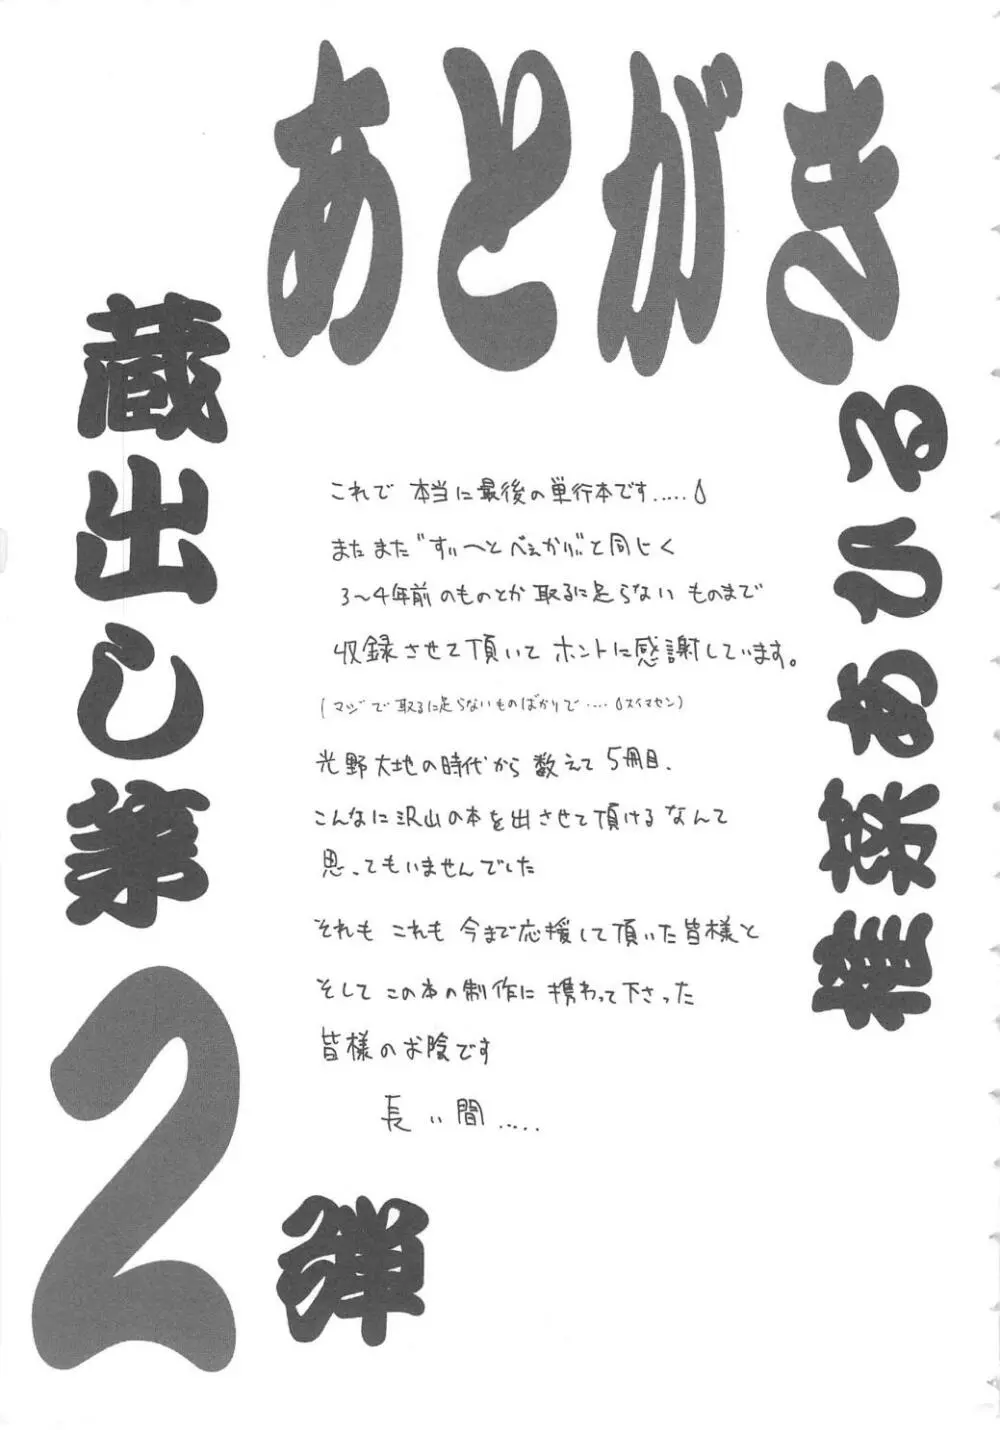 あとがき
蔵出し第2弾
椎奈あひる
これで 本当に最後の単行本です.....
またまた"すぃーとべぇかりぃ"と同じく
3〜4年前のものとか 取るに足らない ものまで
収録させて頂いて ホントに感謝しています。
(マジで取るに足らないものばかりで.... スイマセン)
光野大地の時代から 数えて 5冊目.
こんなに沢山の本を出させて頂けるなんて
思ってもいませんでした
それも これも 今まで応援して頂いた皆様と
そして この本の制作に 携わって下さった
皆様のお陰です
長い間.....